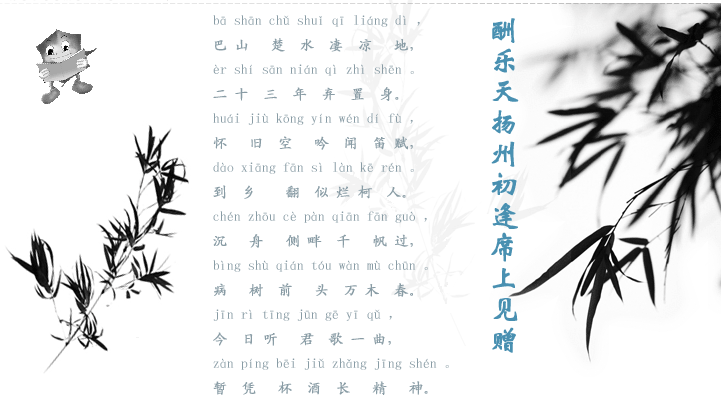 酬乐天扬州初逢席上见赠
bā shān chǔ shuǐ qī liáng dì ，
巴山楚水凄凉地，
èr shí sān nián qì zhì shēn 。
二十三年弃置身。
huái jiù kōng yín wén dí fù ，
怀旧空吟闻笛赋，
dào xiāng fān sì làn kē rén 。
到乡翻似烂柯人。
chén zhōu cè pàn qiān fān guò ，
沉舟侧畔千帆过，
bìng shù qián tóu wàn mù chūn 。
病树前头万木春。
jīn rì tīng jūn gē yī qǔ ，
今日听君歌一曲，
zàn píng bēi jiǔ zhǎng jīng shén 。
暂凭杯酒长精神。